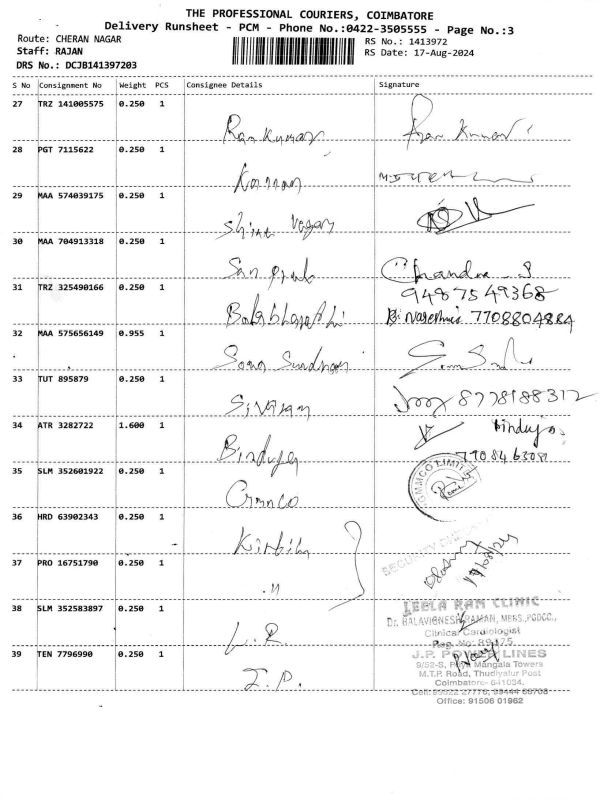 THE PROFESSIONAL COURIERS, COIMBATORE
Delivery Runsheet - PCM - Phone No.:0422-3505555 - Page No.:3
Route: CHERAN NAGAR
RS No.: 1413972
Staff: RAJAN
RS Date: 17-Aug-2024
DRS No.: DCJB141397203
S No Consignment No Weight PCS Consignee Details Signature
27 TRZ 141005575 0.250 1
Ramkumar Ram Kumar
28 PGT 7115622 0.250 1
Kannan
29 MAA 574039175 0.250 1
30 MAA 704913318 0.250 1
Chandra - S
31 TRZ 325490166 0.250 1 9487549368
Balabharathi 7708804884
32 MAA 575656149 0.955 1
33 TUT 895879 0.250 1
8778188312
Sivaram
34 ATR 3282722 1.600 1
Binduja
Binduja
35 SLM 352601922 0.250 1
GMMCO LIMITED
GMMCO
36 HRD 63902343 0.250 1
SECURITY
37 PRO 16751790 0.250 1
17/08/24
38 SLM 352583897 0.250 1
LEELA RAM CLINIC
Dr. BALAVIGNESH RAMAN, MBBS.,PGDCC.,
Clinical Cardiologist
Reg. No: 89375
L.R
39 TEN 7796990 0.250 1
J.P. POWER LINES
9/52-S, Mangala Towers
M.T.P. Road, Thudiyalur Post
Coimbatore- 641034.
J.P.
Office: 91506 01962